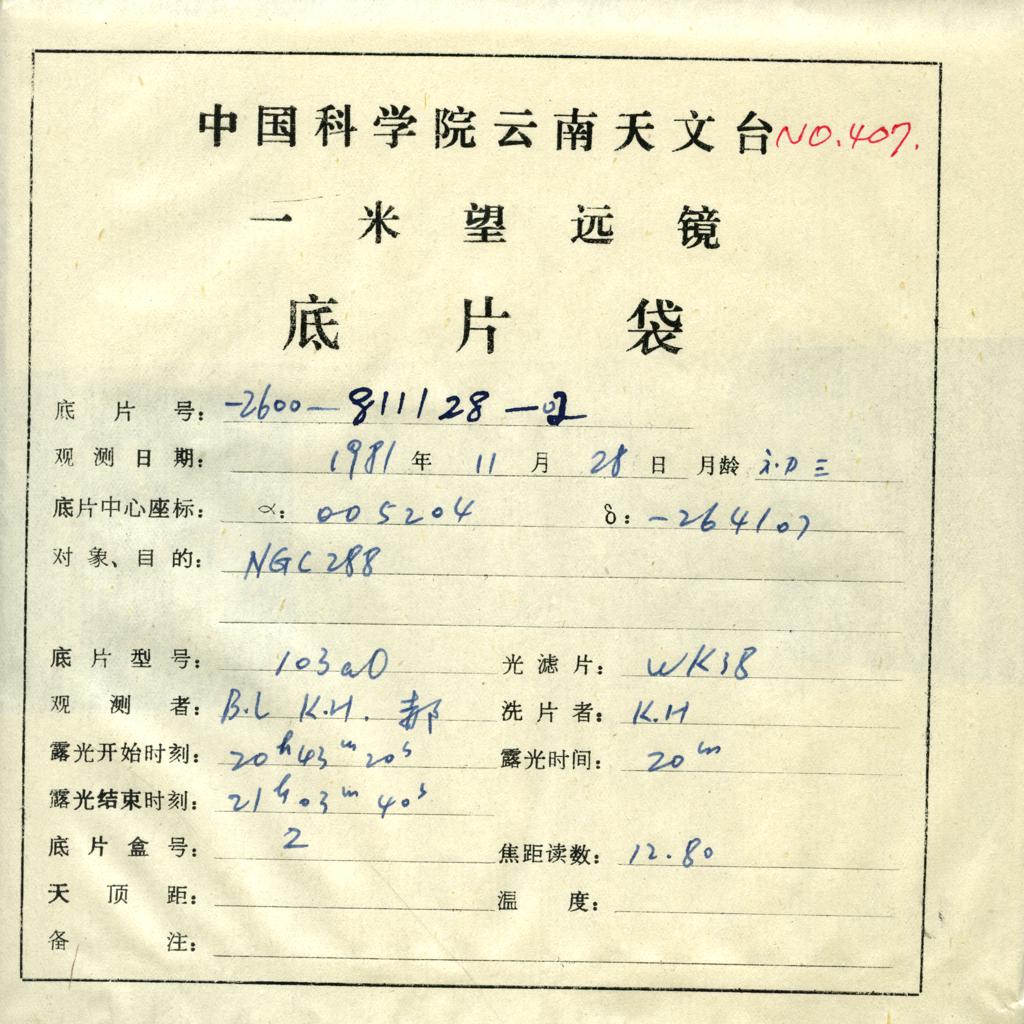 中国科学院云南天文台 NO.407.
一米望远镜
底片袋
底片号: -2600-811128-02
观测日期: 1981年11月28日 月龄 初三
底片中心座标: α: 005204 δ: -264107
对象、目的: NGC288
底片型号: 103aO 光滤片: WK38
观测者: B.L K.H. 郝 洗片者: K.H
露光开始时刻: 20h43m20s 露光时间: 20m
露光结束时刻: 21h03m40s
底片盒号: 2 焦距读数: 12.80
天顶距: 温度:
备注: